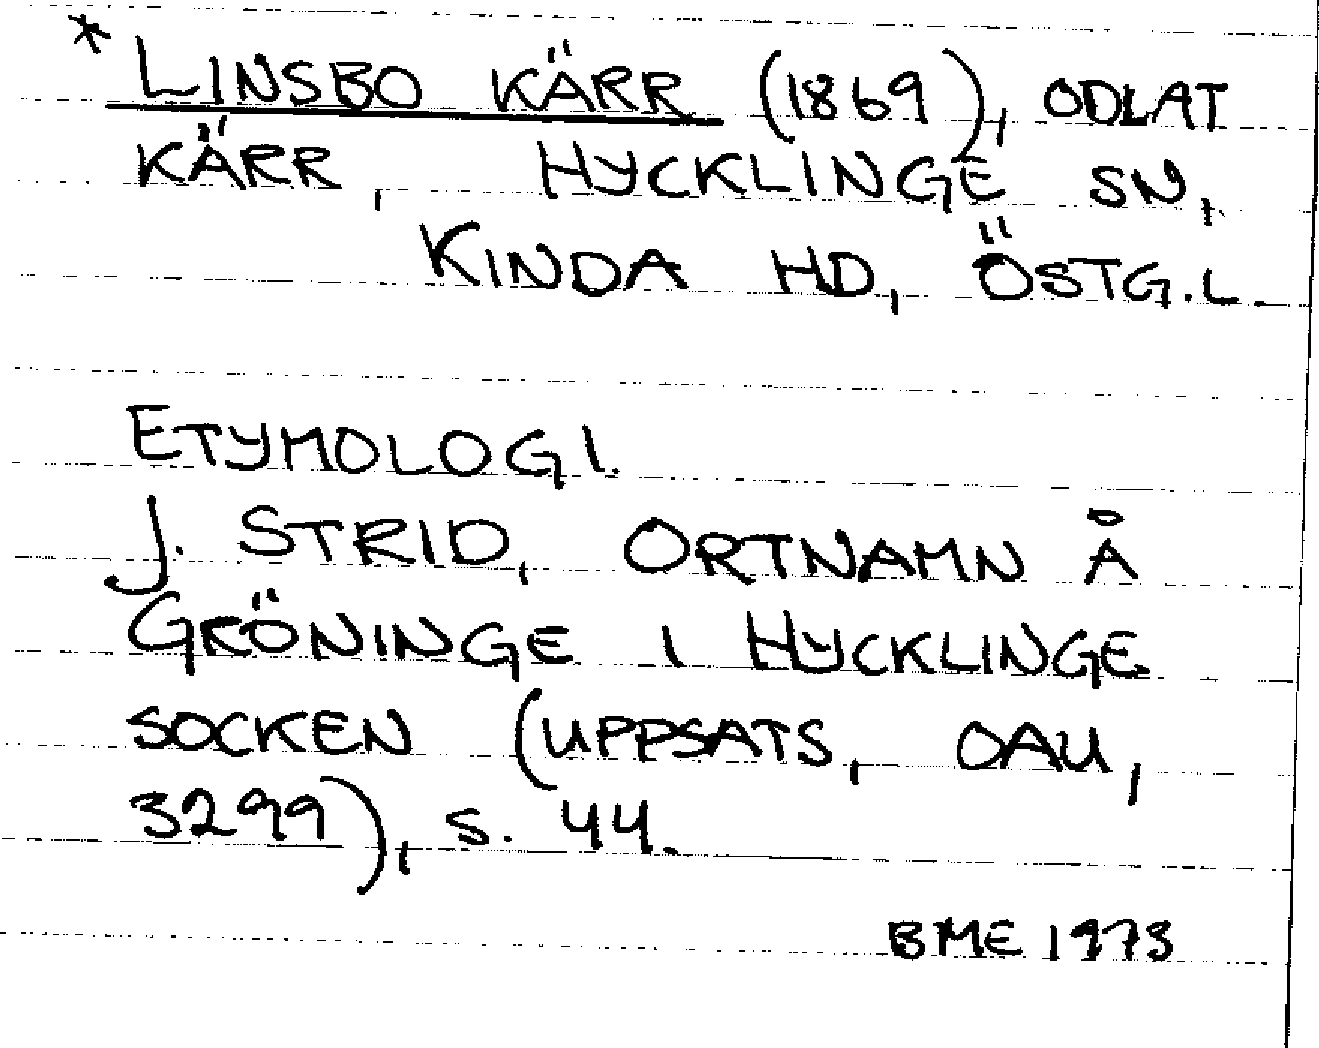 * LINSBO KÄRR (1869), ODLAT
KÄRR, HYCKLINGE SN,
KINDA HD, ÖSTG.L.
ETYMOLOGI.
J. STRID, ORTNAMN Å
GRÖNINGE I HYCKLINGE
SOCKEN (UPPSATS, OAU,
3299), S. 44.
BME 1973